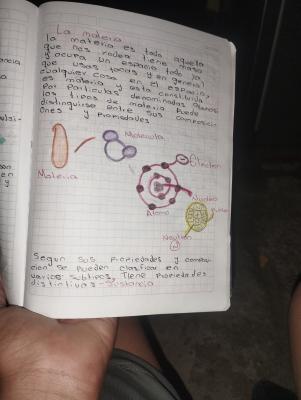 La materia
la materia es todo aquello
que nos rodea tiene masa
y ocupa un espacio todo lo
que usas tocas y en general
cualquier cosa en el espacio,
es materia y esta constituida
Por Particulas denominadas atomos
los tipos de materia puede
distinguirse entre sus composicio
ones y propiedades
Molecula
Electron
Materia
Nucleo
Atomo
Proton
Neutron
N
Segun sus propiedades y composi
cion se pueden clasificar en
varios subtipos, Tiene propiedades
distintivas - Sustancia